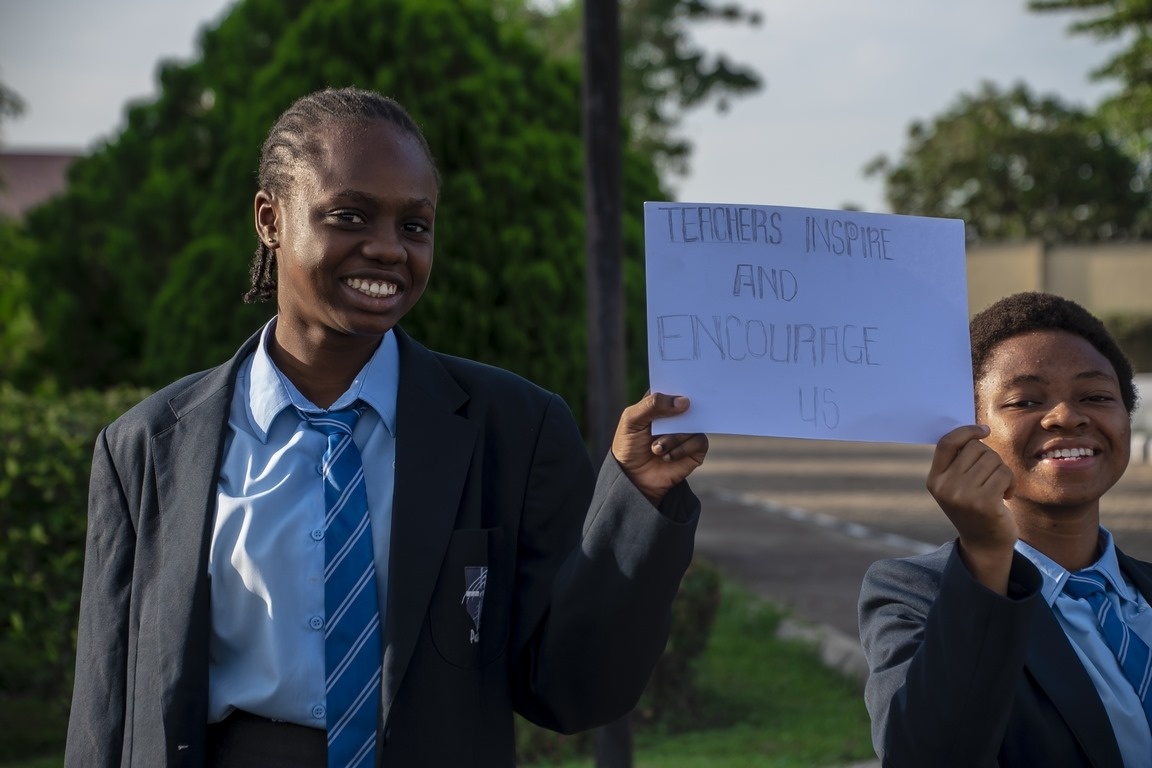 TEACHERS INSPIRE
AND
ENCOURAGE
US